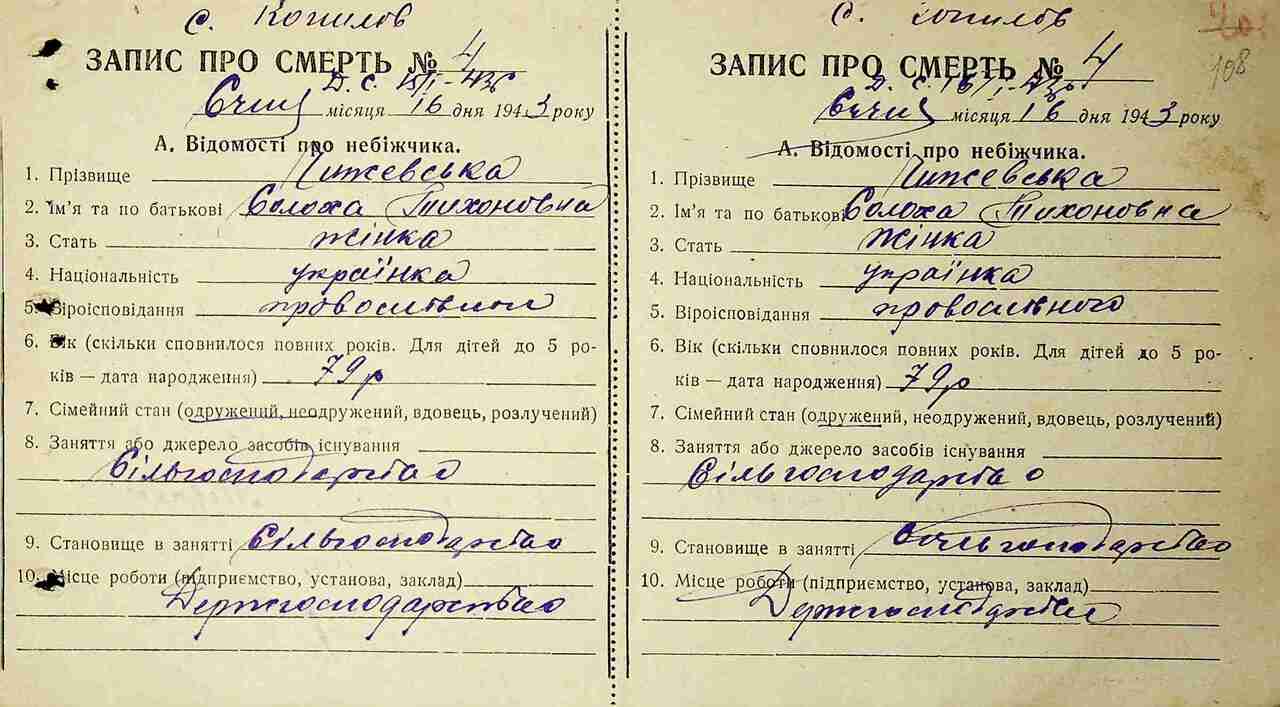 с. Копилов
ЗАПИС ПРО СМЕРТЬ № 4
Д. С. 15/I-43р
Січня місяця 16 дня 1943 року
А. Відомості про небіжчика.
1. Прізвище Чижевська
2. Ім'я та по батькові Солоха Тихоновна
3. Стать жінка
4. Національність українка
5. Віроісповідання
6. Вік (скільки сповнилося повних років. Для дітей до 5 ро-
ків — дата народження) 79 р
7. Сімейний стан (одружений, неодружений, вдовець, розлучений)
8. Заняття або джерело засобів існування
Сільгосподарство
9. Становище в занятті Сільгосподарство
10. Місце роботи (підприємство, установа, заклад)
Держгосподарство
с. Копилов
108
ЗАПИС ПРО СМЕРТЬ № 4
Д. С. 16/I-43р
Січня місяця 16 дня 1943 року
А. Відомості про небіжчика.
1. Прізвище Чижевська
2. Ім'я та по батькові Солоха Тихоновна
3. Стать Жінка
4. Національність українка
5. Віроісповідання
6. Вік (скільки сповнилося повних років. Для дітей до 5 ро-
ків — дата народження) 79 р
7. Сімейний стан (одружений, неодружений, вдовець, розлучений)
8. Заняття або джерело засобів існування
Сільгосподарство
9. Становище в занятті Сільгосподарство
10. Місце роботи (підприємство, установа, заклад)
Держгосподарство